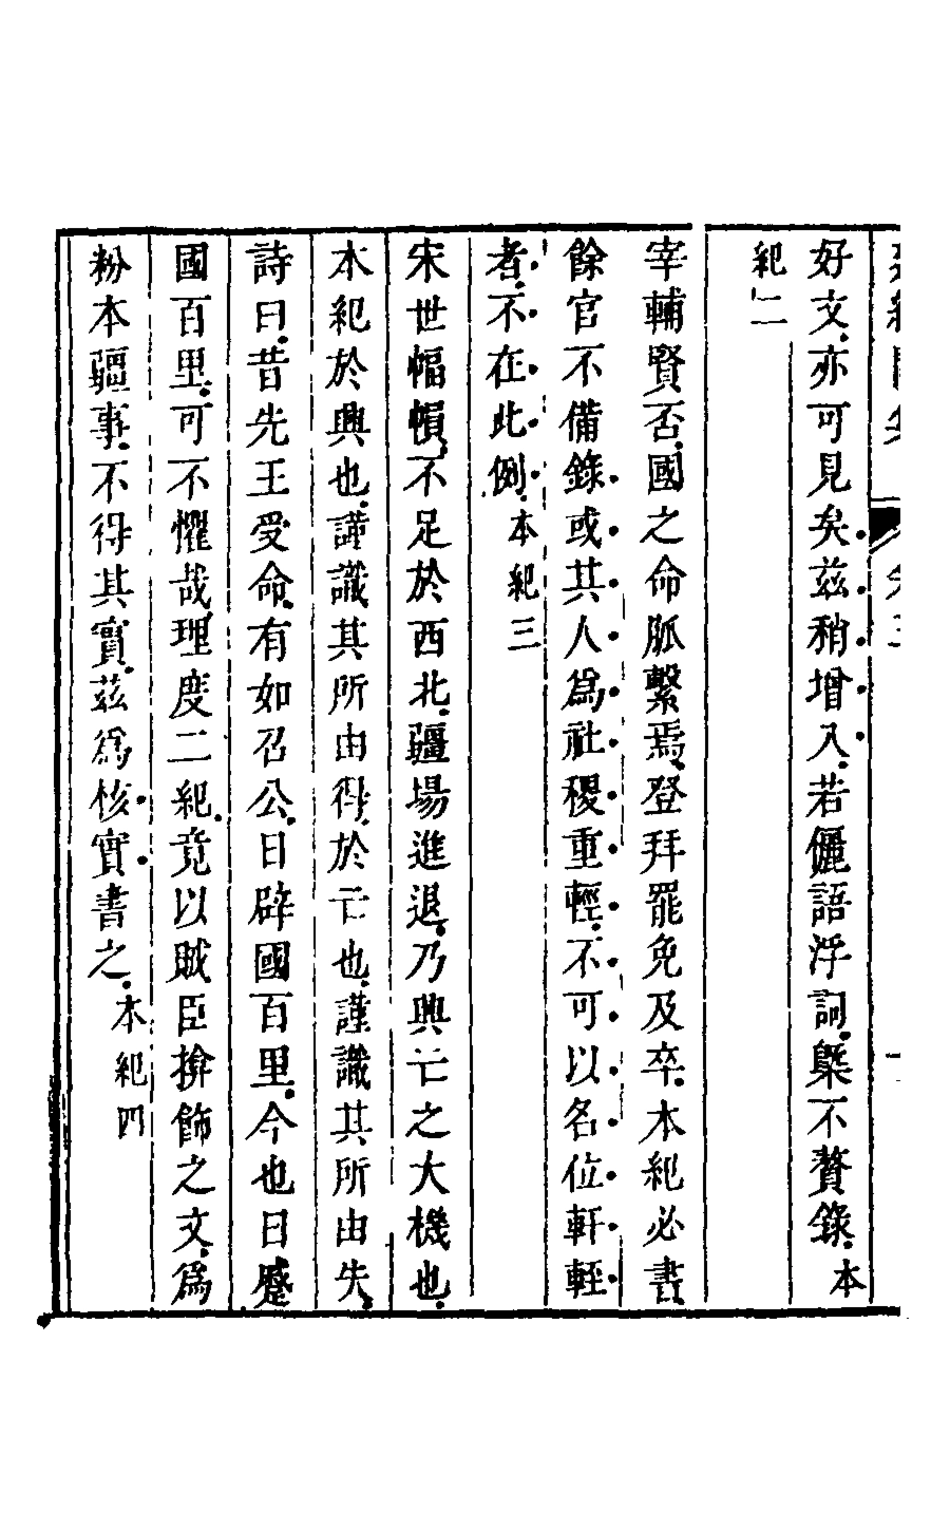 好文亦可見矣茲稍增入若儷語浮詞槩不贅錄本
紀二
宰輔賢否國之命脈繫焉登拜罷免及卒本紀必書
餘官不備錄或其人爲社稷重輕不可以名位軒輊
者不在此例本紀三
宋世幅幀不足於西北疆場進退乃興亡之大機也
本紀於興也謹識其所由得於亡也謹識其所由失
詩曰昔先王受命有如召公日辟國百里今也日蹙
國百里可不懼哉理度二紀竟以賊臣揜飾之文爲
粉本疆事不得其實茲爲核實書之本紀四